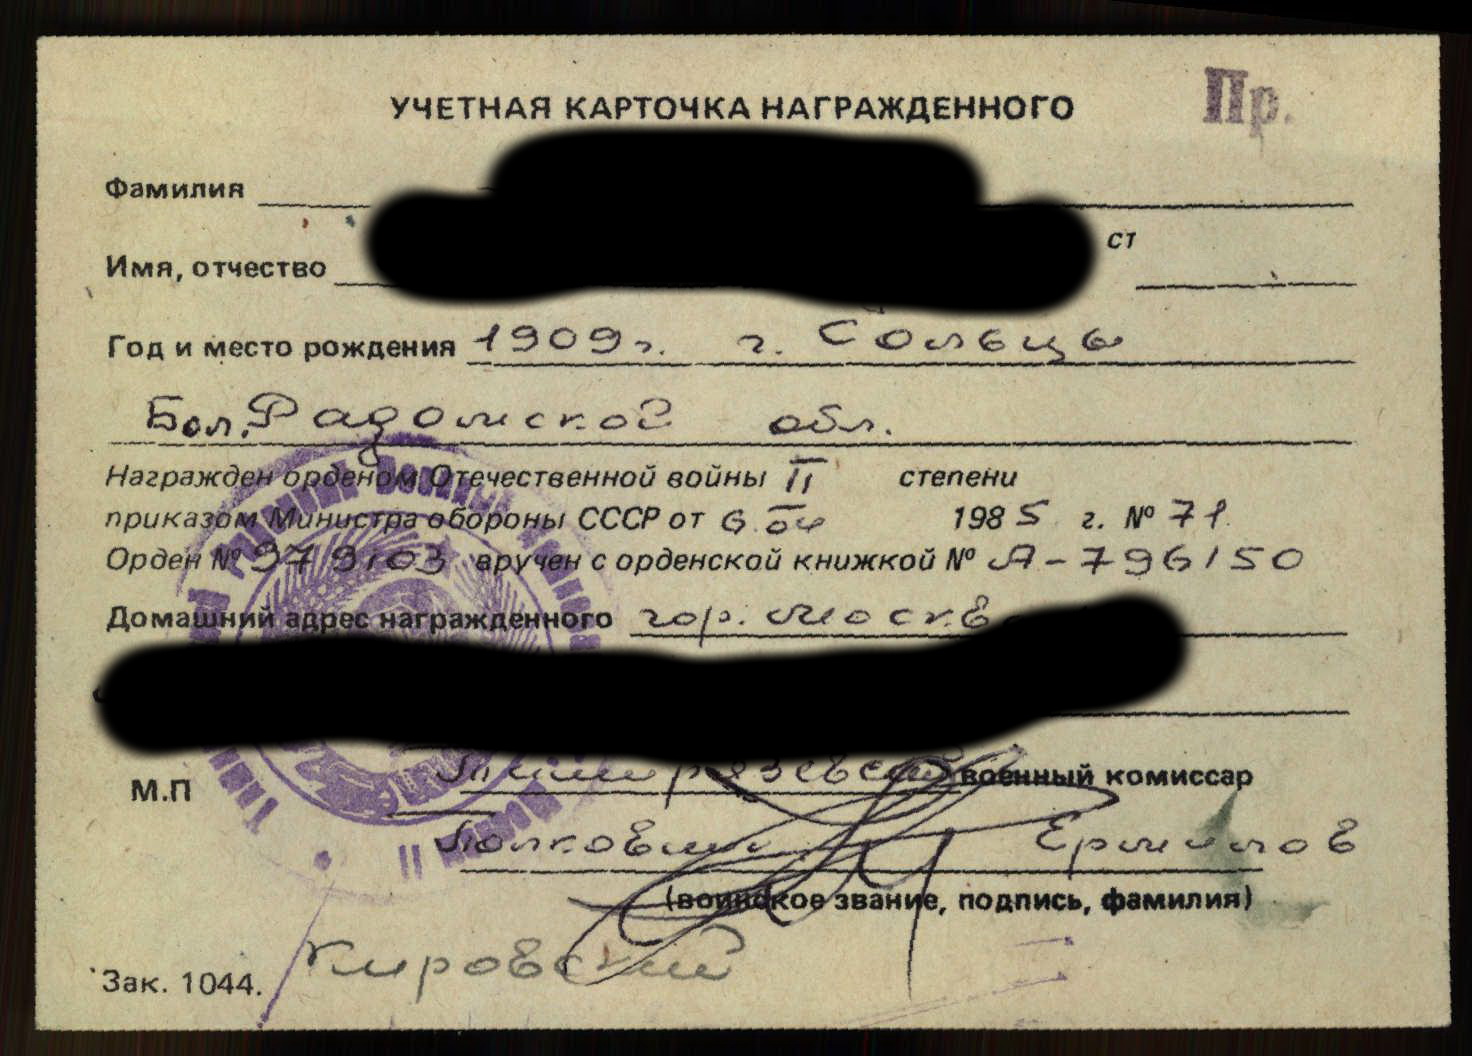 УЧЕТНАЯ КАРТОЧКА НАГРАЖДЕННОГО
Пр.
Фамилия
Имя, отчество
ст
Год и место рождения 1909г. г. Сольцы
Бол. Радомской обл.
Награжден орденом Отечественной войны II степени
приказом Министра обороны СССР от 6.04 1985 г. № 71
Орден № 979103 вручен с орденской книжкой № А-796150
Домашний адрес награжденного гор. Москв
М.П Тимирязевский военный комиссар
Полковник Ермилов
(воинское звание, подпись, фамилия)
Кировский
Зак. 1044.